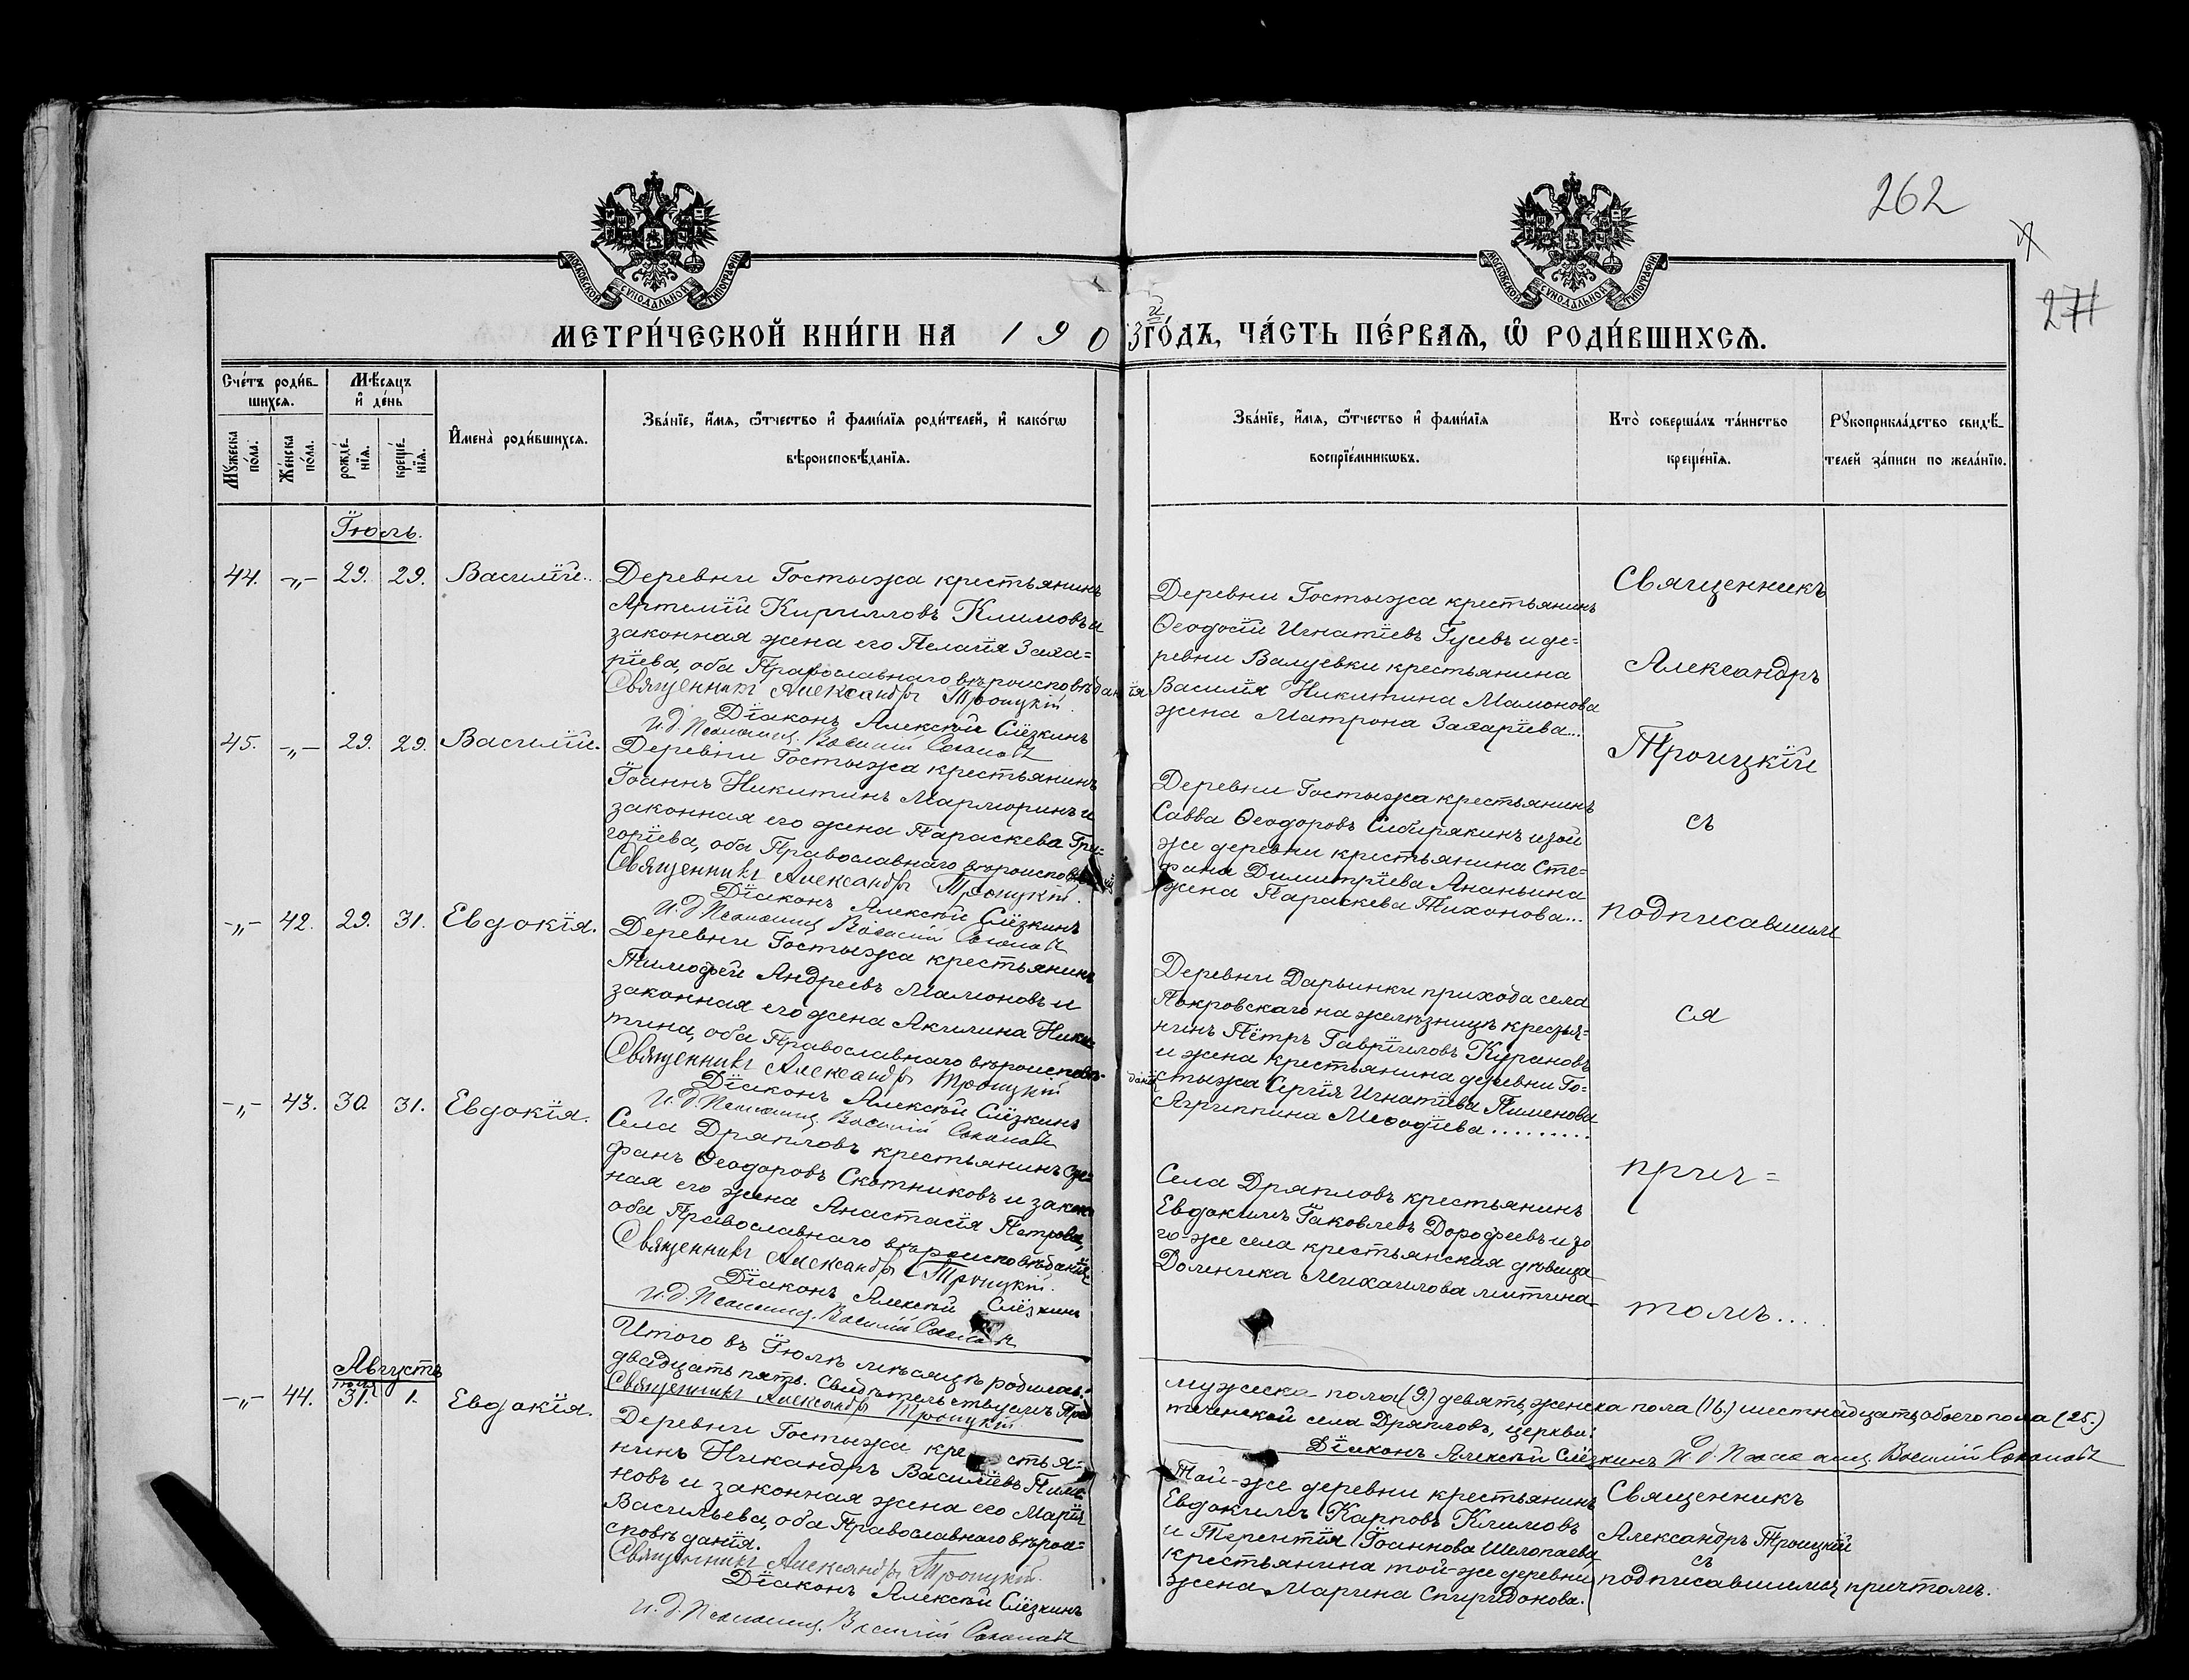 262
271
МОСКОВСКОЙ СѴНОДАЛЬНОЙ ТИПОГРАФІИ
МОСКОВСКОЙ СѴНОДАЛЬНОЙ ТИПОГРАФІИ
МЕТРИ́ЧЕСКОЙ КНИ́ГИ НА 1903й ГО́ДЪ, ЧА́СТЬ ПЕ́РВАѦ, Ѡ҆ РОДИ́ВШИХСѦ.
Сче́тъ роди́в-
шихсѧ.
Мꙋ́жеска по́ла.
Же́нска по́ла.
Мѣ́сѧцъ
и҆ де́нь
рожде́-
нїѧ.
креще́-
нїѧ.
И҆мена̀ роди́вшихсѧ.
Зва́нїе, и҆́мѧ, ѻ҆́тчество и҆ фами́лїѧ роди́телей, и҆ како́гѡ
вѣроисповѣ́данїѧ.
Зва́нїе, и҆́мѧ, ѻ҆́тчество и҆ фами́лїѧ
воспрїе́мникѡвъ.
Кто̀ соверша́лъ та́инство
креще́нїѧ.
Рꙋкоприкла́дство свидѣ́-
телей за́писи по жела́нїю.
Іюль.
44. -„- 29. 29. Василій.
Деревни Гостыжа крестьянинъ
Артемій Кирилловъ Климовъ и
законная жена его Пелагія Заха-
ріева, оба Православнаго вѣроисповѣданія
Священникъ Александръ Троицкій.
Діаконъ Алексѣй Слёзкинъ
И. д. Псаломщ. Василій Соколовъ
Деревни Гостыжа крестьянинъ
Ѳеодосій Игнатіевъ Гусевъ и де-
ревни Валуевки крестьянина
Василія Никитина Мамонова
жена Матрона Захаріева...
Священникъ
Александръ
Троицкій
съ
подписавшим
ся
прич-
томъ....
45. -„- 29. 29. Василій.
Деревни Гостыжа крестьянинъ
Іоаннъ Никитинъ Марморинъ и
законная его жена Параскева Гри-
горіева, оба Православнаго вѣроисповѣ
Священникъ Александръ Троицкій.
Діаконъ Алексѣй Слёзкинъ
И. д. Псаломщ. Василій Соколовъ
Деревни Гостыжа крестьянинъ
Савва Ѳеодоровъ Сибирякинъ и той
же деревни крестьянина Сте-
фана Димитріева Ананьина
жена Параскева Тихонова...
-„- 42. 29. 31. Евдокія.
Деревни Гостыжа крестьянинъ
Тимоѳей Андреевъ Мамоновъ и
законная его жена Акилина Ники-
тина, оба Православнаго вѣроисповѣ-
данія
Священникъ Александръ Троицкій
Діаконъ Алексѣй Слёзкинъ
И. д. Псаломщ. Василій Соколовъ
Деревни Дарьинки прихода села
Покровскаго на желѣзницѣ крестья-
нинъ Пётръ Гавріиловъ Курановъ
и жена крестьянина деревни Го-
стыжа Сергія Игнатіева Пименова
Агриппина Меѳодіева.........
-„- 43. 30. 31. Евдокія.
Села Дряпловъ крестьянинъ Сте-
фанъ Ѳеодоровъ Скотниковъ и закон
ная его жена Анастасія Петрова,
оба Православнаго вѣроисповѣданія
Священникъ Александръ Троицкій.
Діаконъ Алексѣй Слёзкинъ
И. д. Псаломщ. Василій Соколовъ
Села Дряпловъ крестьянинъ
Евдокимъ Іаковлевъ Дорофеевъ и то
го-же села крестьянская дѣвица
Домника Михаилова Митина
Итого въ Іюлѣ мѣсяцѣ родилось:
мужеска пола (9.) девять, женска пола (16.) шестнадцать, обоего пола (25.)
двадцать пять. Свидѣтельствуемъ Пред
теченской села Дряпловъ, церкви:
Священникъ Александръ Троицкій
Діаконъ Алексѣй Слёзкинъ И. д. Псаломщ. Василій Соколовъ
Августъ
Іюля
-„- 44. 31. 1. Евдокія.
Деревни Гостыжа крестья-
нинъ Никандръ Василіевъ Пиме
новъ и законная жена его Марія
Васильева, оба Православнаго вѣрои-
сповѣданія.
Священникъ Александръ Троицкій.
Діаконъ Алексѣй Слёзкинъ
И. д. Псаломщ. Василій Соколовъ
Той-же деревни крестьянинъ
Евдокимъ Карповъ Климовъ
и Терентія Іоаннова Шелопаева
крестьянина той-же деревни
жена Марина Спиридонова.
Священникъ
Александръ Троицкій
съ
подписавшимся причтомъ.